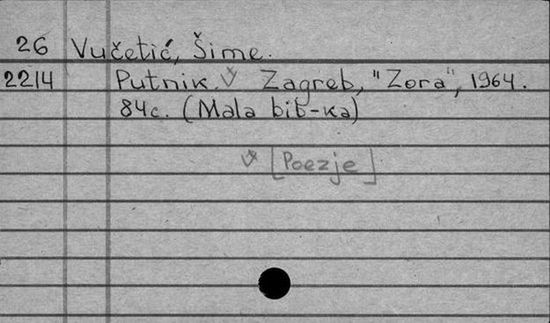 26 Vučetić, Šime.
2214 Putnik. Zagreb, "Zora", 1964.
84c. (Mala bib-ka)
[Poezje]